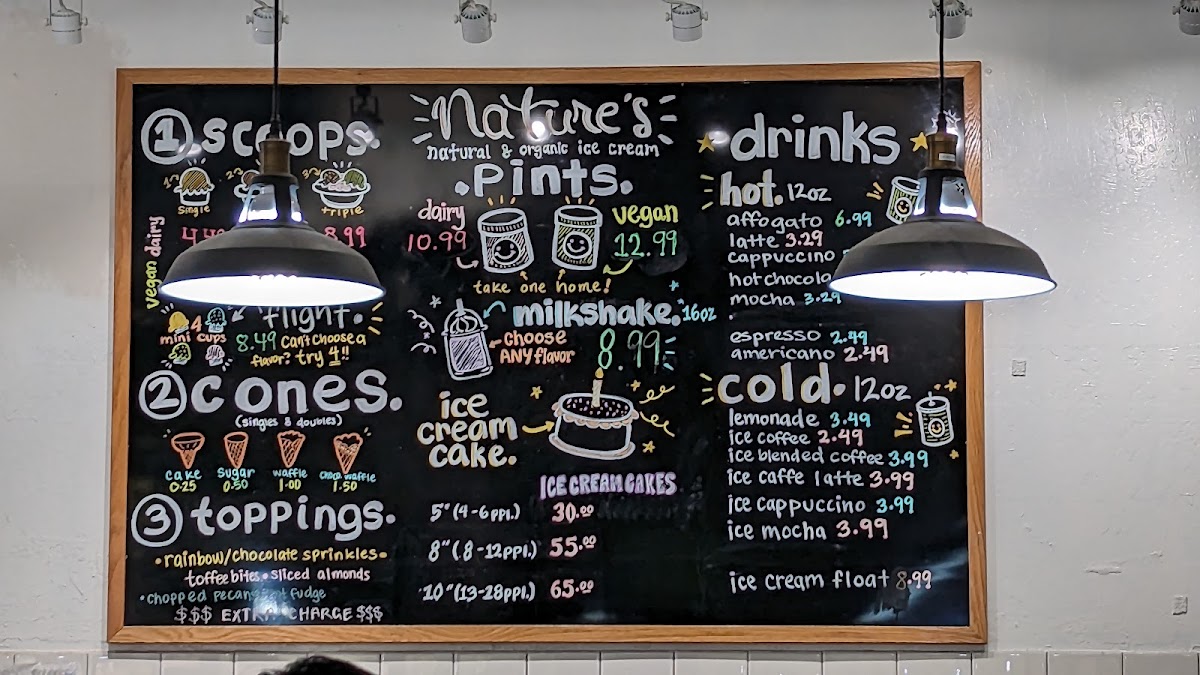 1. scoops.
1 2 3
single
triple
vegan dairy
8.99
flight.
4 mini cups
8.49 Can't choose a
flavor? try 4!!
2 cones.
(singles & doubles)
cake sugar waffle choc waffle
0.25 0.50 1.00 1.50
3 toppings.
• rainbow/chocolate sprinkles •
toffee bites • sliced almonds
• chopped pecans fudge
$$$ EXTRA CHARGE $$$
Nature's
natural & organic ice cream
.pints.
dairy
10.99
vegan
12.99
take one home!
milkshake. 16oz
choose
ANY flavor
8.99
ice
cream
cake.
ICE CREAM CAKES
5" (4-6 ppl.) 30.00
8" (8-12 ppl.) 55.00
10" (13-28 ppl.) 65.00
drinks
hot. 12oz
affogato 6.99
latte 3.29
cappuccino
mocha 3.29
espresso 2.49
americano 2.49
cold. 12oz
lemonade 3.49
ice coffee 2.49
ice blended coffee 3.99
ice caffe latte 3.99
ice cappuccino 3.99
ice mocha 3.99
ice cream float 8.99